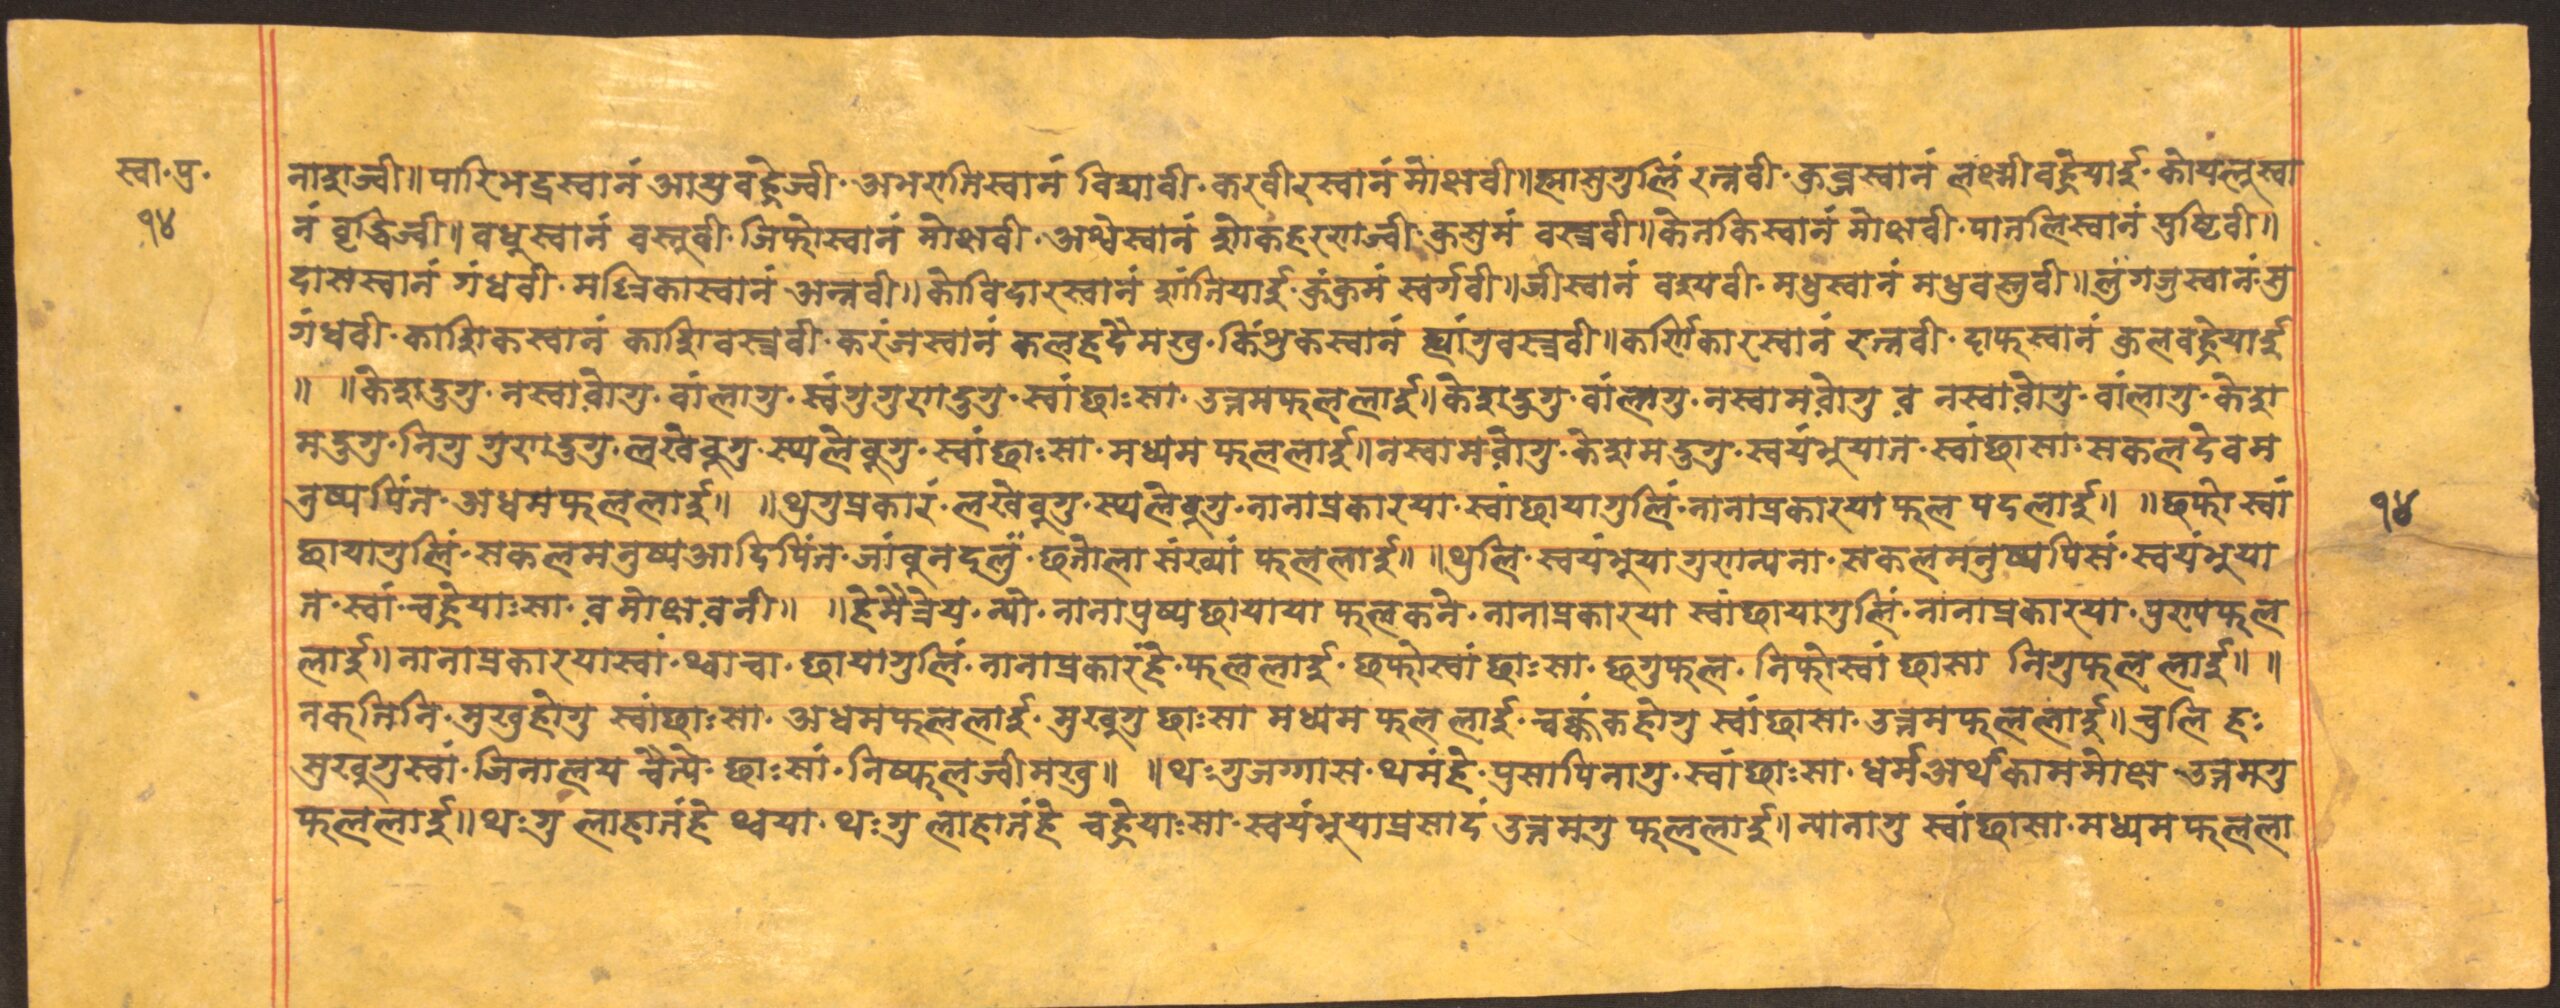 स्वा·पु·
१४
नाशज्वी॥पारिभद्रस्वानं आयुवढेज्वी·अभराजिस्वानं विद्यावी·करवीरस्वानं मोक्षवी॥ह्मासुगुलिं रत्नवी·कुब्जस्वानं लक्ष्मीवढेयार्इ·कोयलुस्वा
नं वृद्धिज्वी॥वधुस्वानं वस्तुवी·जिफोस्वानं मोक्षवी·अश्वेस्वानं शोकहरणज्वी·कुसुमं वस्त्रवी॥केतकिस्वानं मोक्षवी·पातलिस्वानं पुष्टिवी॥
दासस्वानं गंधवी·मल्लिकास्वानं अन्नवी॥कोविदारस्वानं शांतियार्इ·कुंकुमं स्वर्गवी॥जीस्वानं वश्यवी·मधुस्वानं मधुवस्तुवी॥लुंगजुस्वानं·सु
गंधवी·काशिकस्वानं काशिवस्त्रवी·करंजस्वानं कलहदैमखु·किंशुकस्वानं ह्यांगुवस्त्रवी॥कर्णिकारस्वानं रत्नवी·दाफस्वानं कुलवढेयार्इ
॥ ॥केशदुगु·नस्वावोगु·वांलागु·स्वंगुगुणदुगु·स्वांछाःसा·उत्तमफललार्इ॥केशदुगु·वांलागु·नस्वामवोगु व नस्वावोगु·वांलागु·केश
मदुगु·निगु गुणदुगु·लखेबुगु·स्थलेबुगु·स्वांछाःसा·मध्यम फललार्इ॥नस्वामवोगु·केशमदुगु·स्वयंभुयात·स्वांछासा·सकलदेवम
नुष्यपिंत·अधमफललार्इ॥ ॥थुगुप्रकारं·लखेबुगु·स्थलेबुगु·नानाप्रकारया·स्वांछायागुलिं·नानाप्रकारया फल पदलार्इ॥ ॥छफो स्वां
१४
छायागुलिं·सकलमनुष्यआदिपिंत·जांबुनदलुं·छतोला संख्यां फललार्इ॥ ॥थुलि·स्वयंभुया गुणन्यना·सकलमनुष्यपिसं·स्वयंभुया
त·स्वां·चढेयाःसा·व मोक्षवनी॥ ॥हेमैत्रेय·न्यो·नानापुष्पछायाया फलकने·नानाप्रकारया स्वांछायागुलिं·नानाप्रकारया·पुण्यफल
लार्इ॥नानाप्रकारयास्वां·थ्वाचा·छायागुलिं·नानाप्रकारंहे·फललार्इ·छफोस्वां छाःसा·छगुफल·निफोस्वां छासा निगुफल लार्इ॥ ॥
नकतिनि·मुखुहोगु स्वांछाःसा·अधमफललार्इ·मुखुगु छाःसा मध्यम फल लार्इ·चक्कंकहोगु स्वांछासा·उत्तमफललार्इ॥चुलि हः
सुखुगुस्वां·जिनालय चैत्ये·छाःसां·निष्फलज्वीमखु॥ ॥थःगुजग्गास·थमंहे·पुसापिनागु·स्वांछाःसा·धर्मअर्थकाममोक्ष उत्तमगु
फललार्इ॥थःगु लाहातंहे थ्वया·थःगु लाहातंहे चढेयाःसा·स्वयंभुयाप्रसादं उत्तमगु फललार्इ॥न्यानागु स्वांछासा·मध्यमफलला